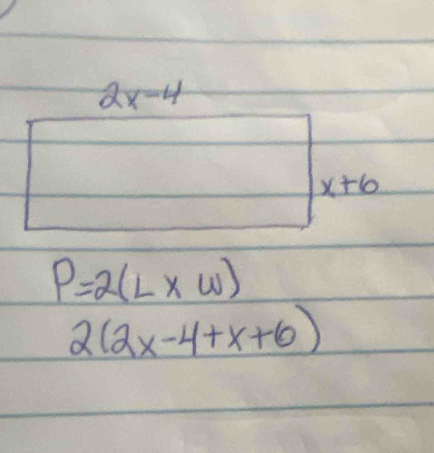 2x-4
x+6
P=2(L x W)
2(2x-4+x+6)